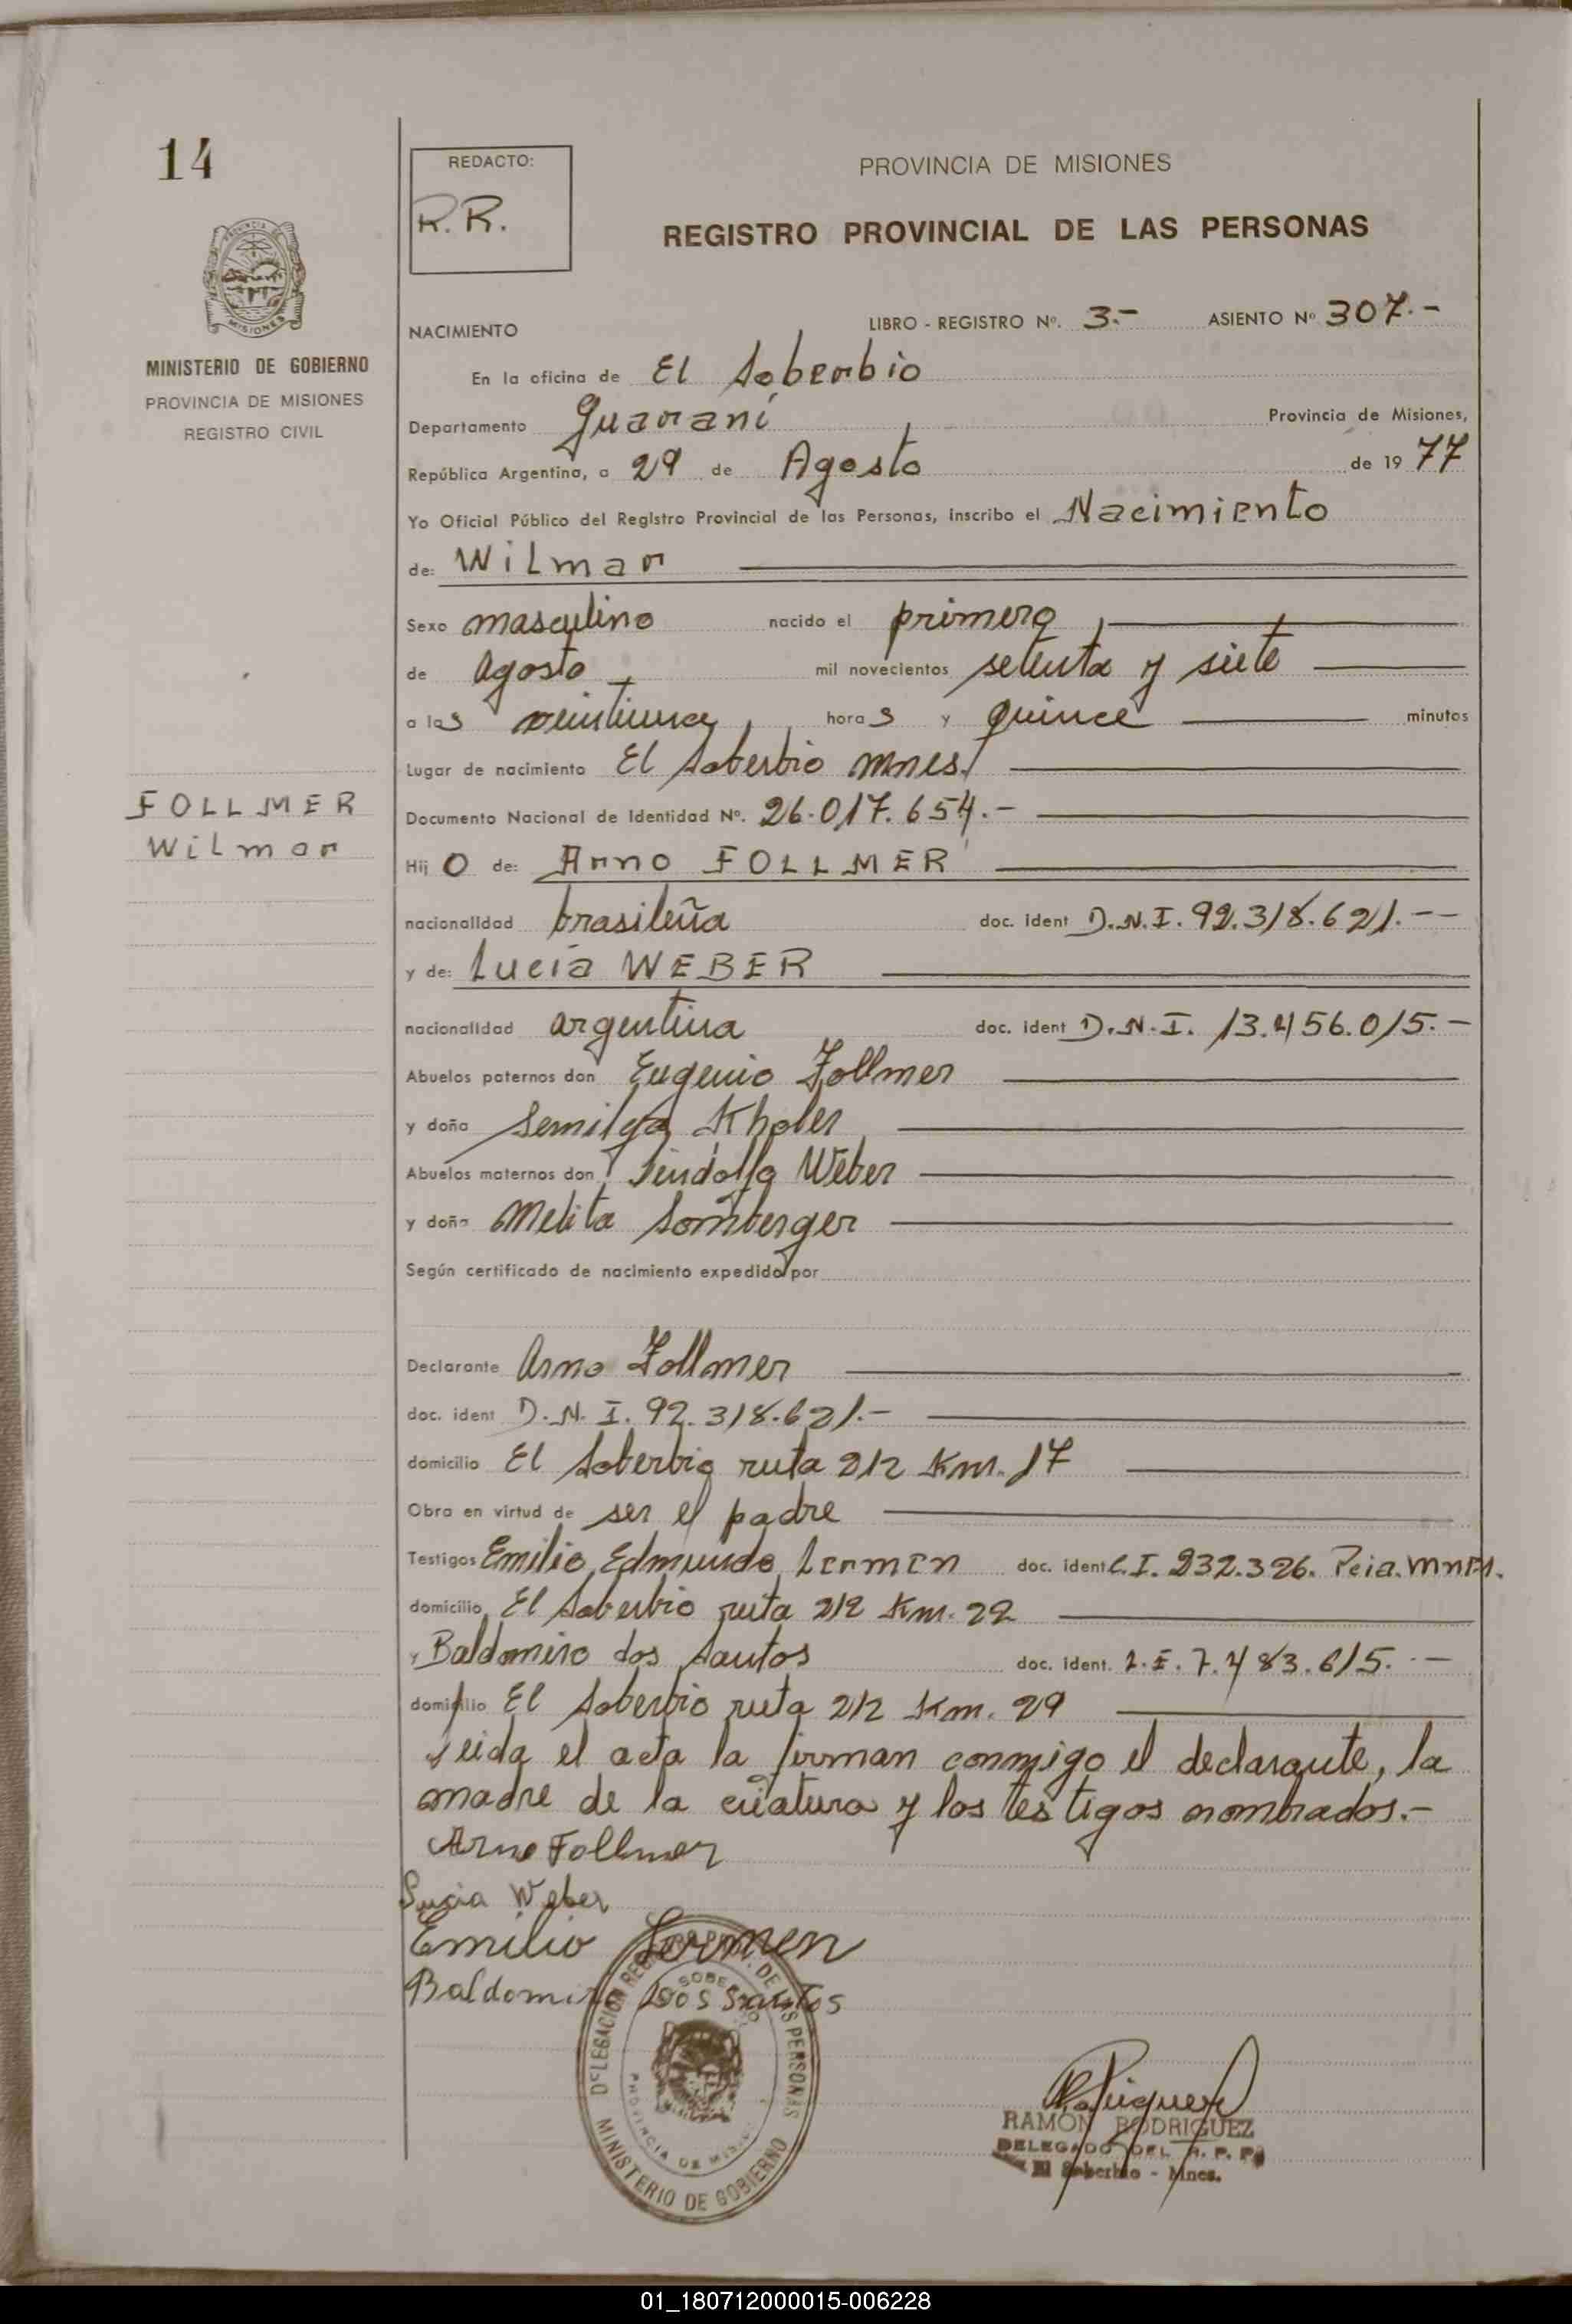 14
REDACTO:
R.R.
PROVINCIA DE MISIONES
REGISTRO PROVINCIAL DE LAS PERSONAS
MISIONES
MINISTERIO DE GOBIERNO
PROVINCIA DE MISIONES
REGISTRO CIVIL
NACIMIENTO LIBRO - REGISTRO Nº. 3.- ASIENTO Nº 307.-
En la oficina de El Soberbio
Departamento Guaraní Provincia de Misiones,
República Argentina, a 29 de Agosto de 19 77
Yo Oficial Público del Registro Provincial de las Personas, inscribo el Nacimiento
de: Wilmar
Sexo masculino nacido el primero
de agosto mil novecientos setenta y siete
a las veintiuna horas y quince minutos
Lugar de nacimiento El Soberbio Mnes.
Documento Nacional de Identidad Nº. 26.017.654.-
FOLLMER
Wilmar
Hijo de: Arno FOLLMER
nacionalidad brasileña doc. ident D.N.I. 92.318.621.--
y de: Lucía WEBER
nacionalidad argentina doc. ident D.N.I. 13.456.015.-
Abuelos paternos don Eugenio Follmer
y doña Semilga Kholer
Abuelos maternos don Lindolfo Weber
y doña Melita Somberger
Según certificado de nacimiento expedido por
Declarante Arno Follmer
doc. ident D.N.I. 92.318.621.-
domicilio El Soberbio ruta 212 Km. 17
Obra en virtud de ser el padre
Testigos Emilio Edmundo Lermen doc. ident C.I. 232.326. Pcia. Mnes.
domicilio El Soberbio ruta 212 Km. 22
y Baldomiro dos Santos doc. ident. L.E. 7.483.615.--
domicilio El Soberbio ruta 212 Km. 29
Leida el acta la firman conmigo el declarante, la
madre de la criatura y los testigos nombrados.-
Arno Follmer
Lucia Weber
Emilio Lermen
Baldomiro Dos Santos
DELEGACION REGISTRO PROV. DE LAS PERSONAS
SOBERBIO
PROVINCIA DE MISIONES
MINISTERIO DE GOBIERNO
RAMON RODRIGUEZ
DELEGADO DEL R. P. P.
El Soberbio - Mnes.
01_180712000015-006228